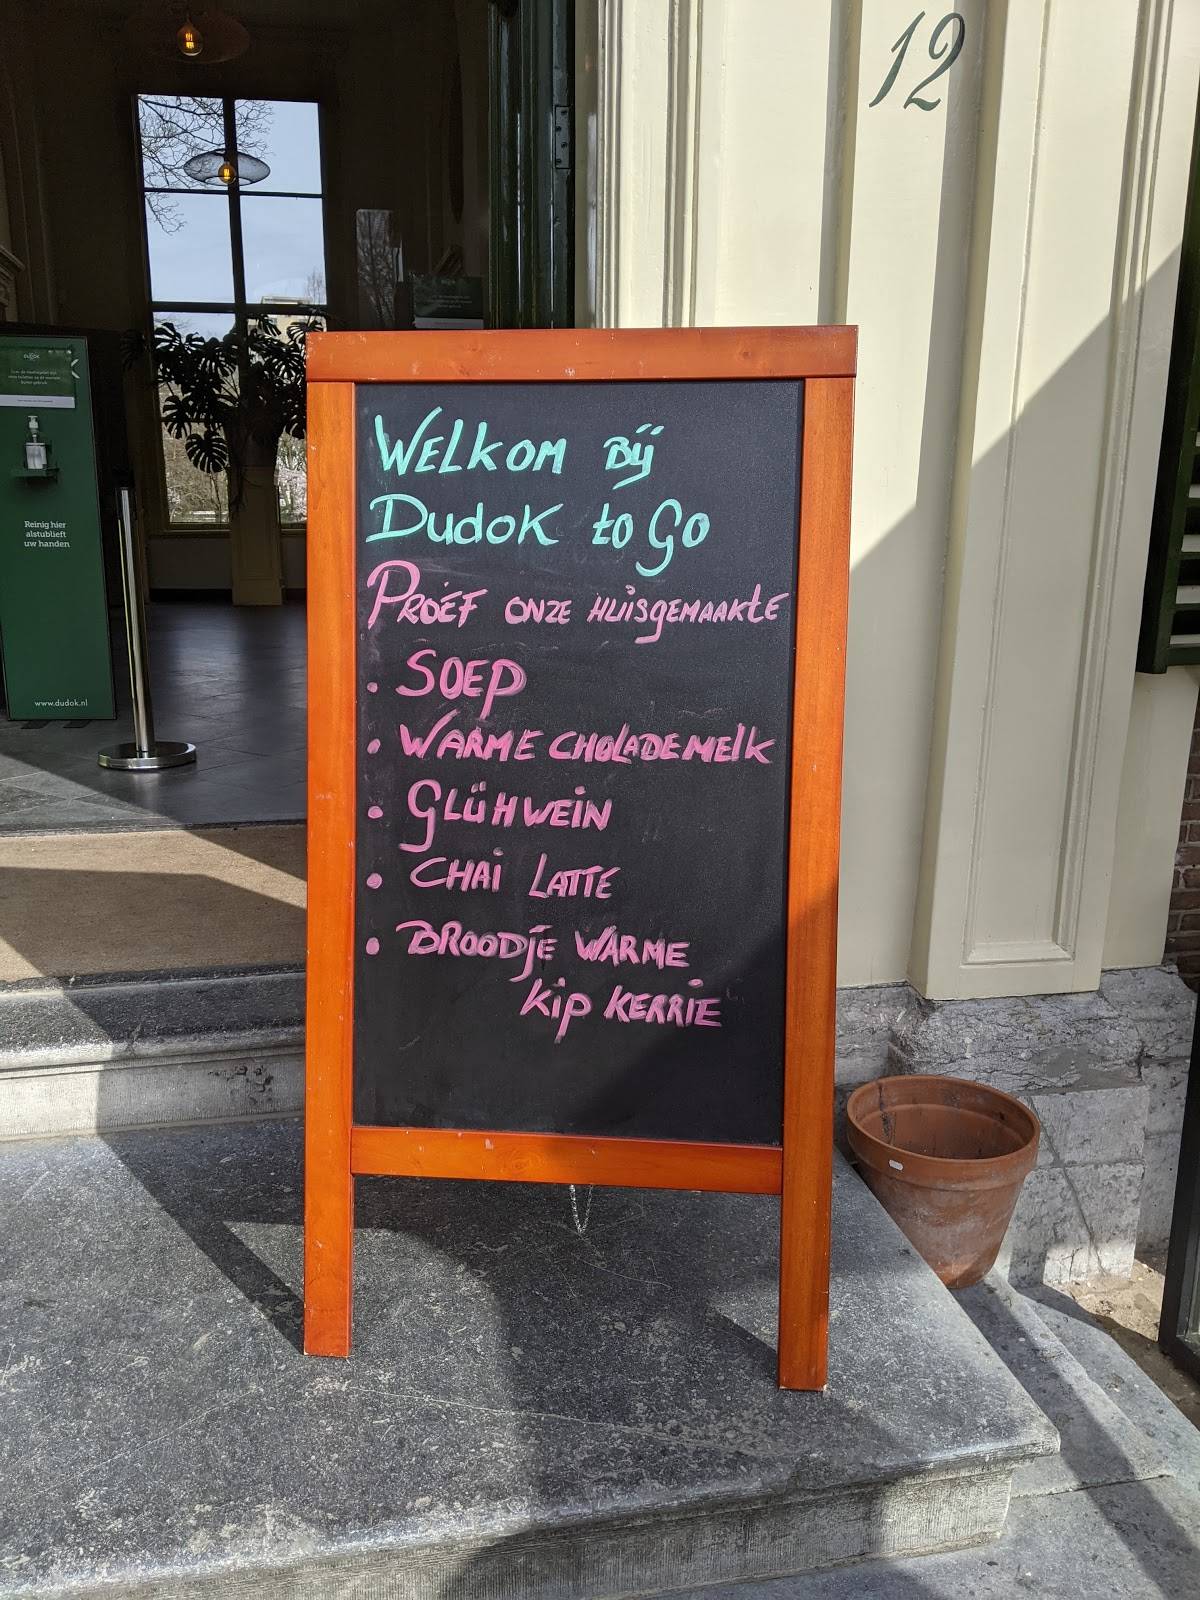 12
WELKOM BIJ
DUDOK to GO
PROEF ONZE HUISGEMAAKTE
. SOEP
. WARME CHOLADEMELK
. GLÜHWEIN
. CHAI LATTE
. BROODJE WARME
KIP KERRIE
DUDOK
Reinig hier
alstublieft
uw handen
www.dudok.nl